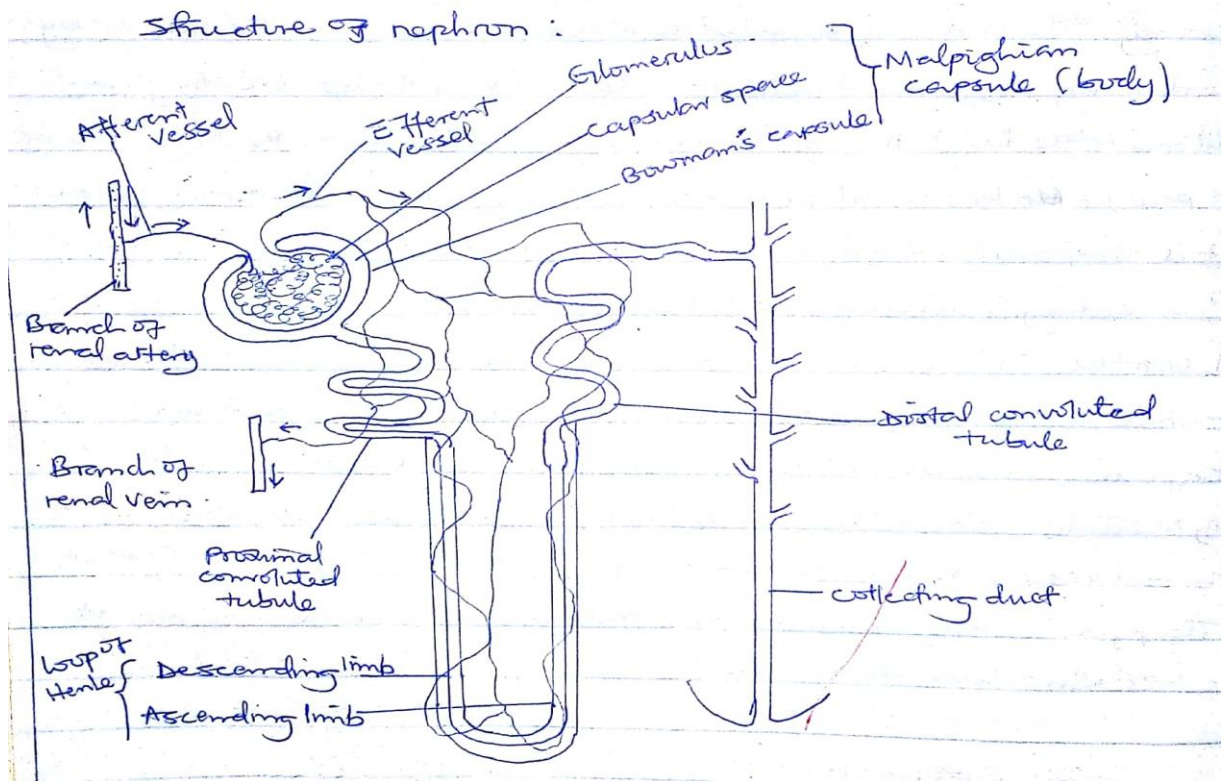 Structure of nephron :
Glomerulus
Malpighian
capsule (body)
Capsular space
Bowman's capsule
Afferent
vessel
Efferent
vessel
Branch of
renal artery
Branch of
renal vein.
Distal convoluted
tubule
Proximal
convoluted
tubule
Collecting duct
Loop of
Henle
Descending limb
Ascending limb